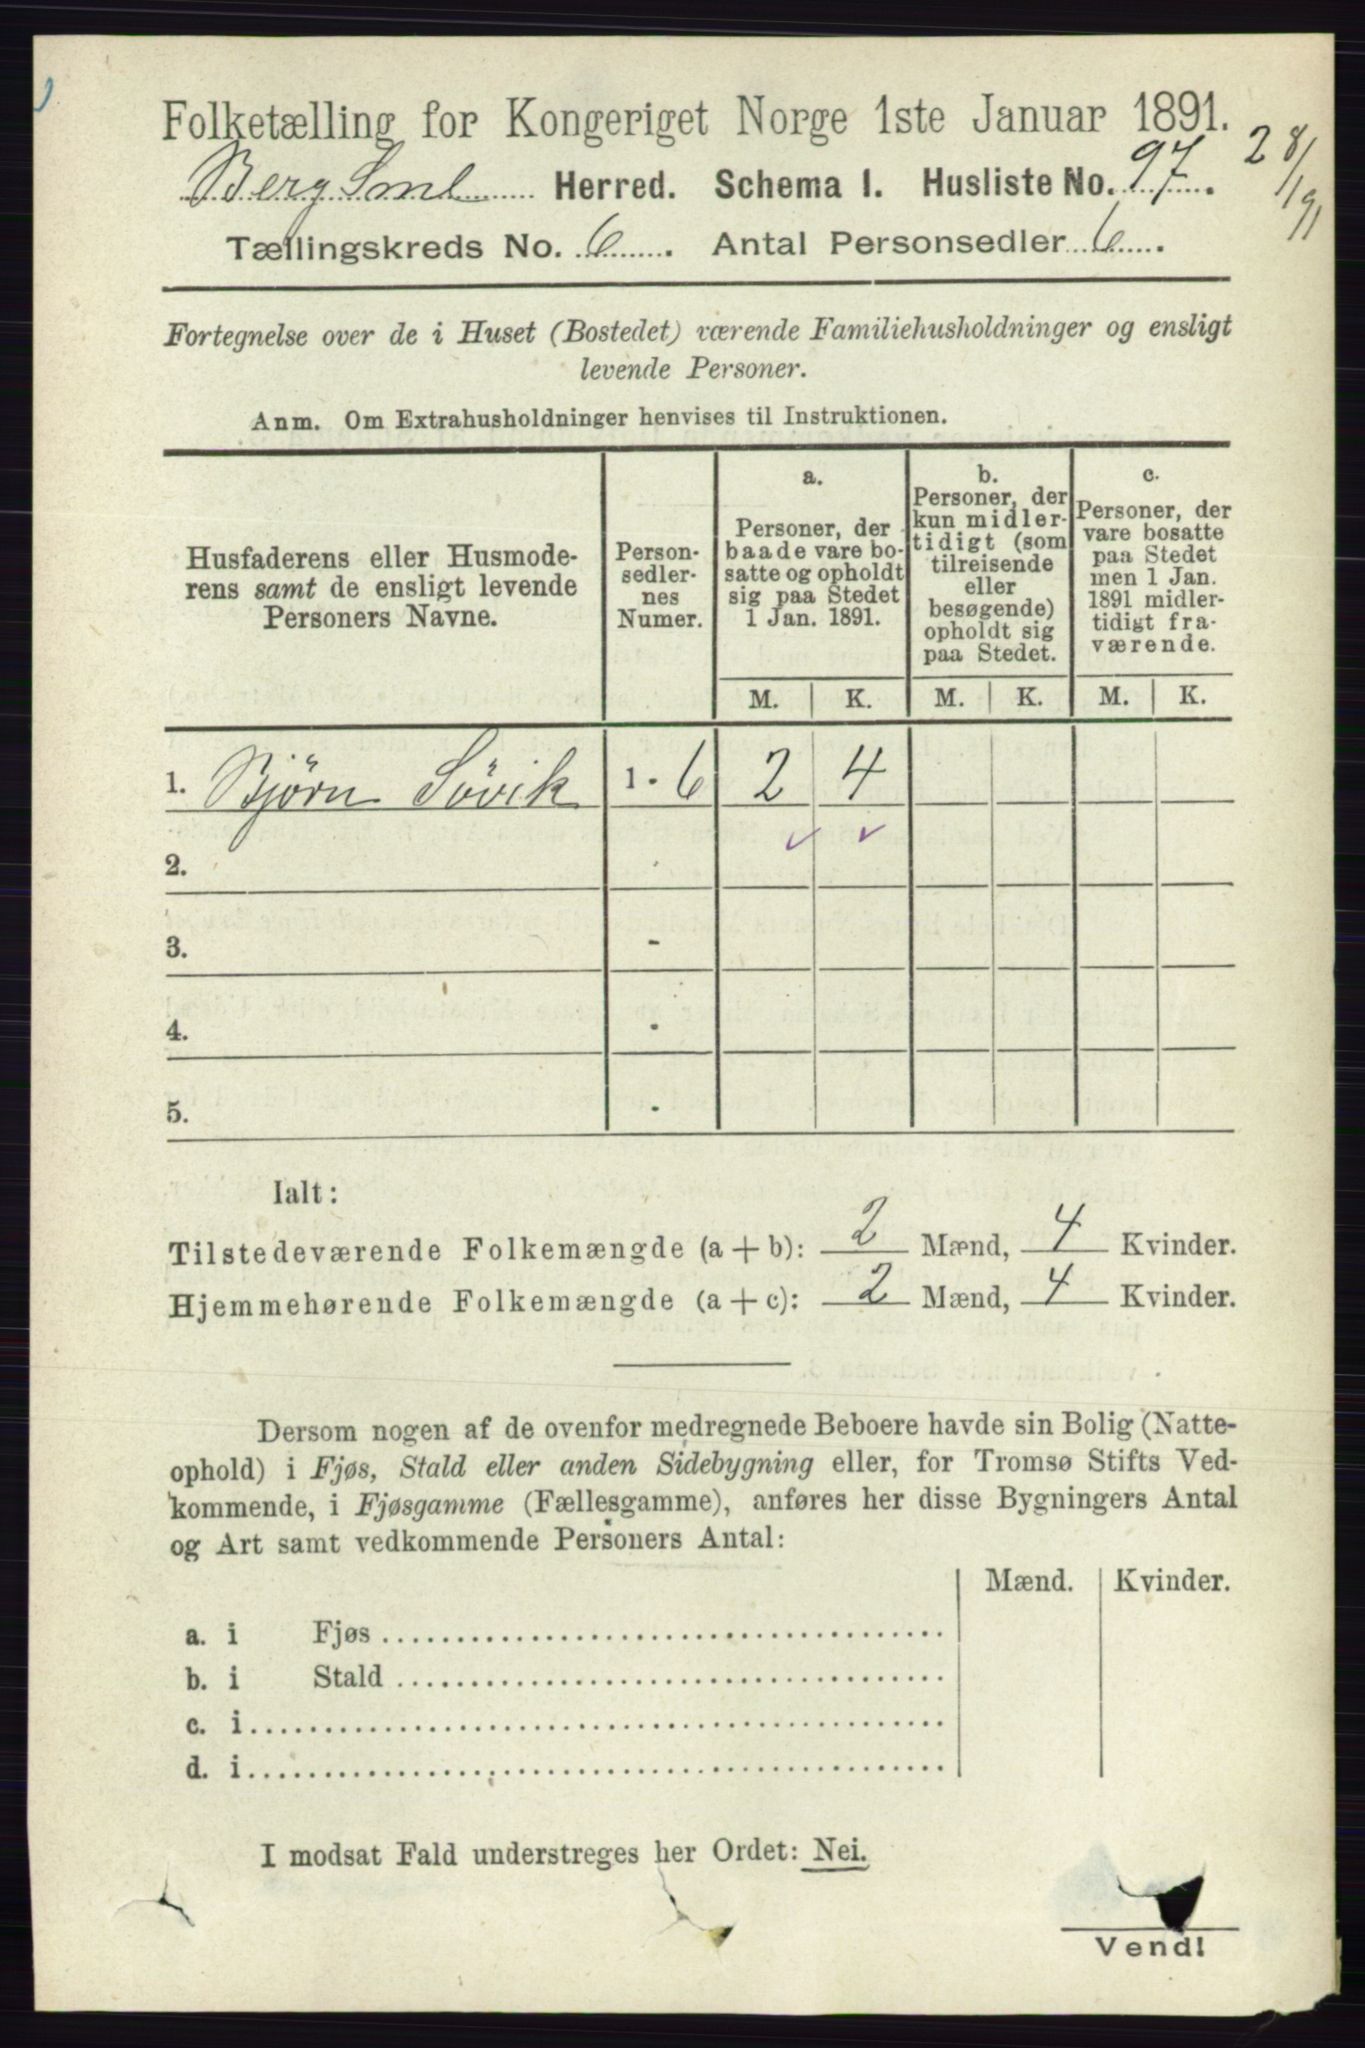 Folketælling for Kongeriget Norge 1ste Januar 1891.
Berg Sml Herred. Schema I. Husliste No. 97.
28/1 91
Tællingskreds No. 6. Antal Personsedler 6.
Fortegnelse over de i Huset (Bostedet) værende Familiehusholdninger og ensligt
levende Personer.
Anm. Om Extrahusholdninger henvises til Instruktionen.
Husfaderens eller Husmode-
rens samt de ensligt levende
Personers Navne.
Person-
sedler-
nes
Numer.
a.
Personer, der
baade vare bo-
satte og opholdt
sig paa Stedet
1 Jan. 1891.
b.
Personer, der
kun midler-
tidigt (som
tilreisende
eller
besøgende)
opholdt sig
paa Stedet.
c.
Personer, der
vare bosatte
paa Stedet
men 1 Jan.
1891 midler-
tidigt fra-
værende.
M. K. M. K. M. K.
1. Bjørn Søvik 1 - 6 2 4
2. -
3. -
4. -
5. -
Ialt:
Tilstedeværende Folkemængde (a + b): 2 Mænd, 4 Kvinder.
Hjemmehørende Folkemængde (a + c): 2 Mænd, 4 Kvinder.
Dersom nogen af de ovenfor medregnede Beboere havde sin Bolig (Natte-
ophold) i Fjøs, Stald eller anden Sidebygning eller, for Tromsø Stifts Ved-
kommende, i Fjøsgamme (Fællesgamme), anføres her disse Bygningers Antal
og Art samt vedkommende Personers Antal:
Mænd. Kvinder.
a. i Fjøs
b. i Stald
c. i
d. i
I modsat Fald understreges her Ordet: Nei.
Vend!